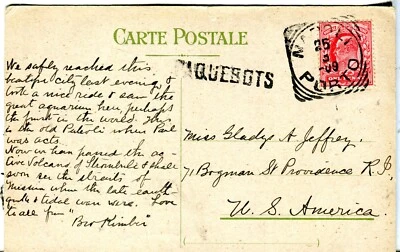 CARTE POSTALE
PAQUEBOTS
NAPOLI
PORTO
25
09
We safely reached this
beautiful city last evening &
took a nice ride & saw the
great aquarium here, perhaps
the finest in the world. This
is the old Puteoli where Paul
was
Now we have passed the ac-
tive Volcano of Stromboli & shall
soon see the straits of
Messina where the late earth
quake & tidal wave were. Love
to all
"Bro
Miss Gladys A Jeffrey,
71 Bogman St Providence R.I.
U. S. America.